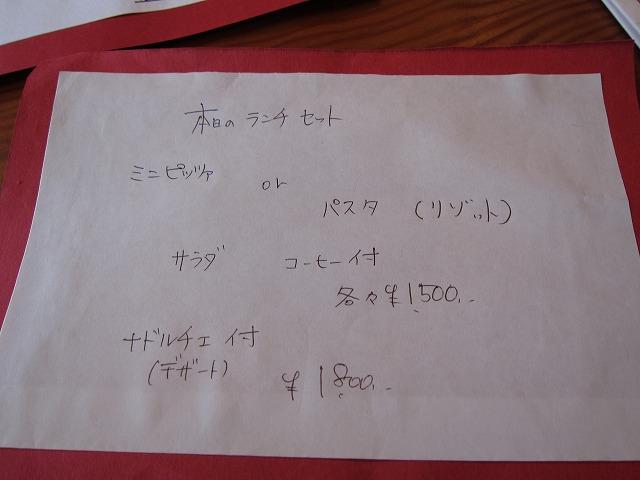 本日のランチセット
ミニピッツァ or
パスタ (リゾット)
サラダ コーヒー付
各々¥1,500..
+ドルチェ付
(デザート)
¥1,800..